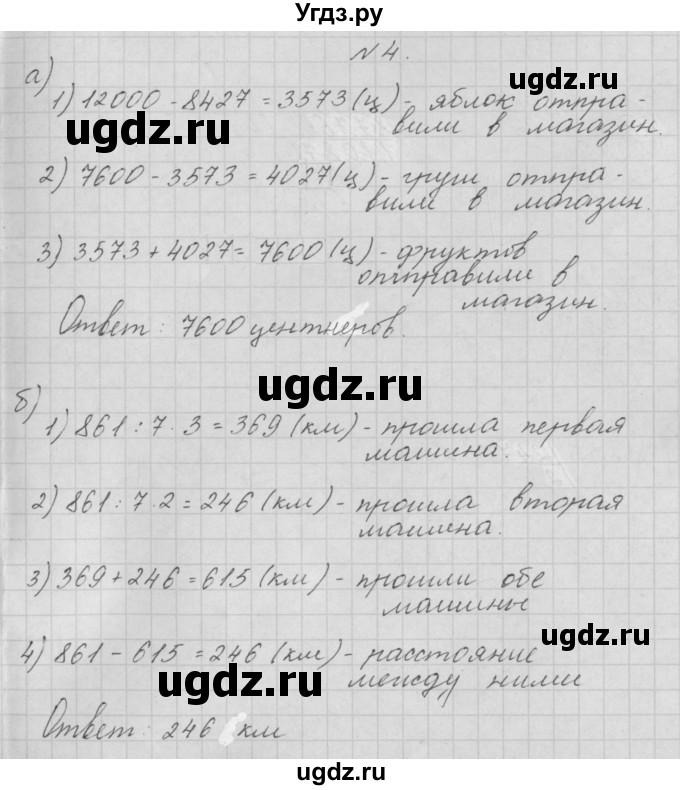 Угдз.ру
№4.
а)
1) 12000 - 8427 = 3573 (ц) - яблок отпра-
вили в магазин.
2) 7600 - 3573 = 4027 (ц) - груш отпра-
вили в магазин.
3) 3573 + 4027 = 7600 (ц) - фруктов
отправили в
магазин.
Ответ: 7600 центнеров.
б)
1) 861 : 7 · 3 = 369 (км) - прошла первая
машина.
2) 861 : 7 · 2 = 246 (км) - прошла вторая
машина.
3) 369 + 246 = 615 (км) - прошли обе
машины
4) 861 - 615 = 246 (км) - расстояние
между ними
Ответ: 246 км
ugdz.ru
ugdz.ru
ugdz.ru
ugdz.ru
ugdz.ru
ugdz.ru
ugdz.ru
ugdz.ru
ugdz.ru